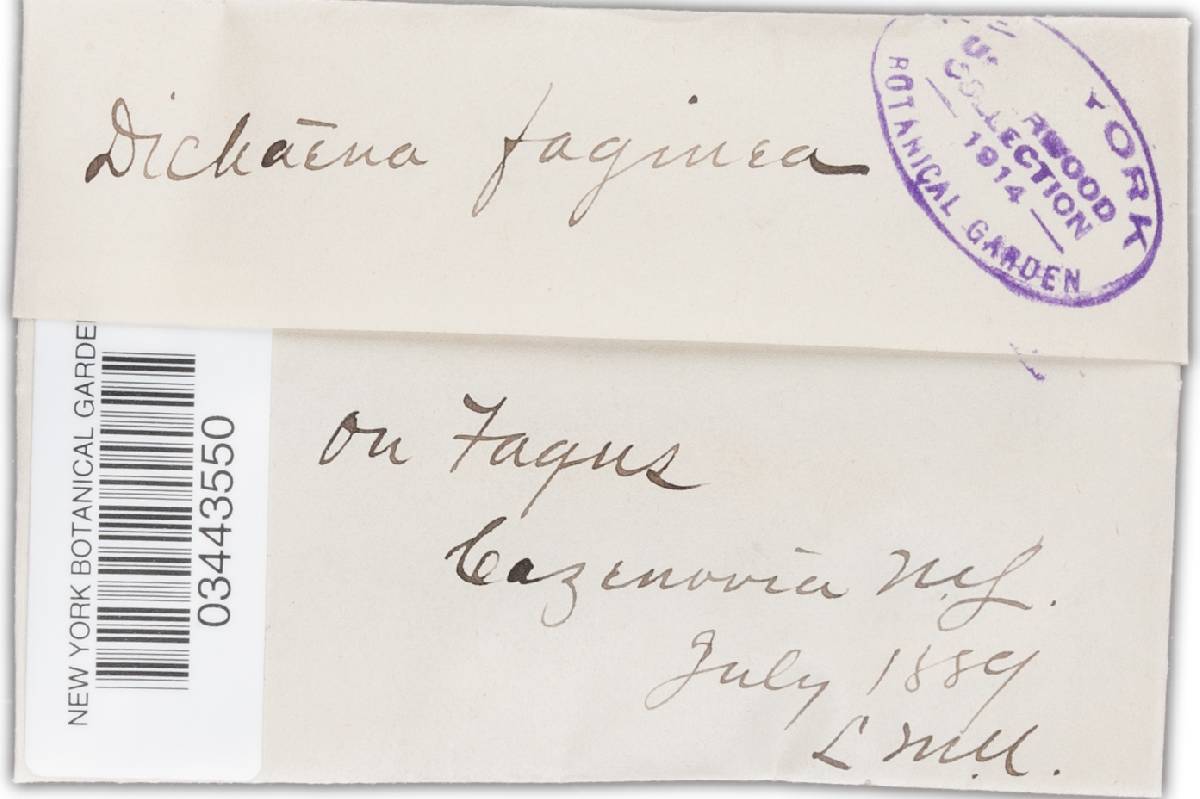 Dichaena faginea
YORK
RWOOD
COLLECTION
— 1914 —
BOTANICAL GARDEN
on Fagus
Cazenovia N.Y.
July 1889
L M U.
NEW YORK BOTANICAL GARDE
03443550